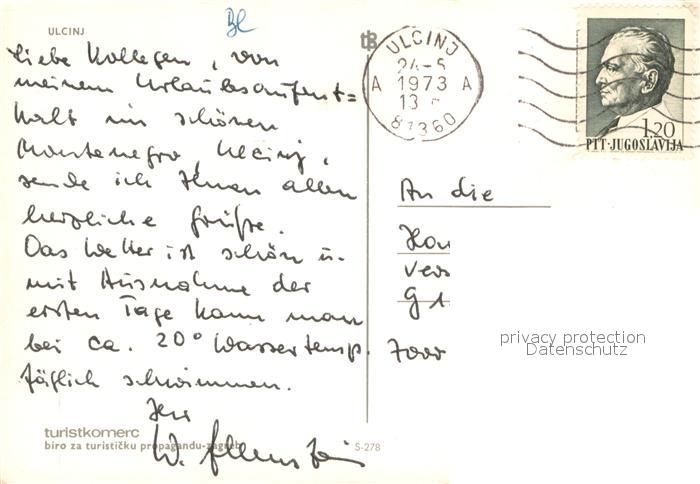 ULCINJ
BL
Liebe Kollegen, von
meinem Urlaubsaufent=
halt im schönen
Montenegro, Ulcinj,
sende ich Ihnen allen
herzliche Grüße.
Das Wetter ist schön u.
mit Ausnahme der
ersten Tage kann man
bei ca. 20° Wassertemp.
täglich schwimmen.
Ihr
W.
turistkomerc
biro za turističku propagandu-zagreb
S-278
ULCINJ
24-5
A 1973 A
13
81360
1,20
PTT·JUGOSLAVIJA
An die
privacy protection
Datenschutz